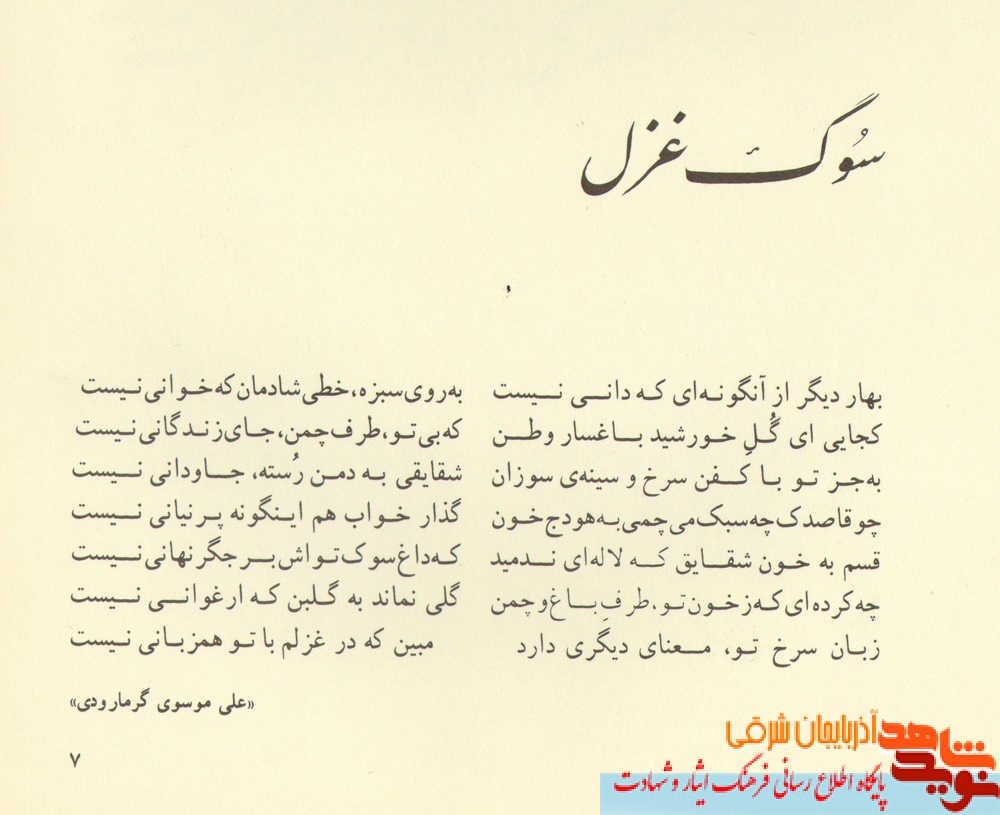 سُوگ غزل
بهار دیگر از آنگونه‌ای که دانی نیست به روی سبزه، خطی شادمان که خوانی نیست
کجایی ای گُلِ خورشید باغسار وطن که بی تو، طرف چمن، جای زندگانی نیست
به جز تو با کفن سرخ و سینه‌ی سوزان شقایقی به دمن رُسته، جاودانی نیست
چو قاصدک چه سبک می‌چمی به هودج خون گذار خواب هم اینگونه پرنیانی نیست
قسم به خون شقایق که لاله‌ای ندمید که داغ سوک تواش بر جگر نهانی نیست
چه کرده‌ای که ز خون تو، طرفِ باغ و چمن گلی نماند به گلبن که ارغوانی نیست
زبان سرخ تو، معنای دیگری دارد مبین که در غزلم با تو همزبانی نیست
«علی موسوی گرمارودی»
۷
نوید شاهد آذربایجان شرقی
پایگاه اطلاع رسانی فرهنگ ایثار و شهادت